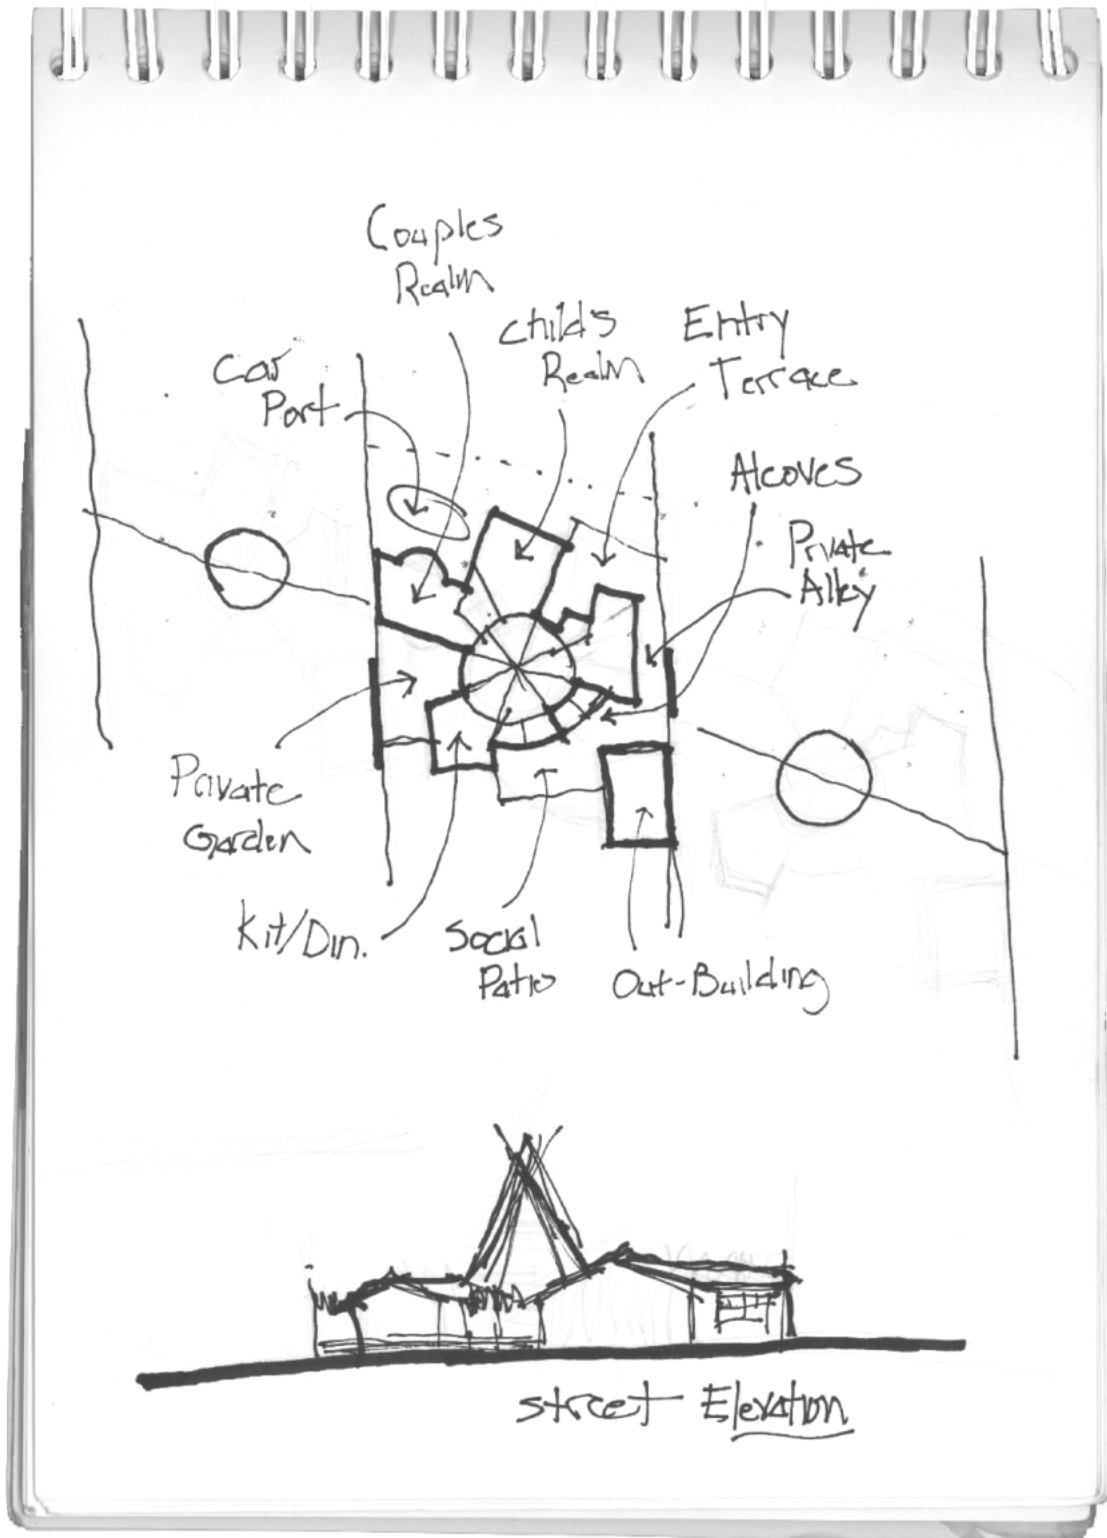 Couples
Realm
Child's
Realm
Entry
Terrace
Car
Port
Alcoves
Private
Alley
Private
Garden
Kit/Din.
Social
Patio
Out-Building
Street Elevation